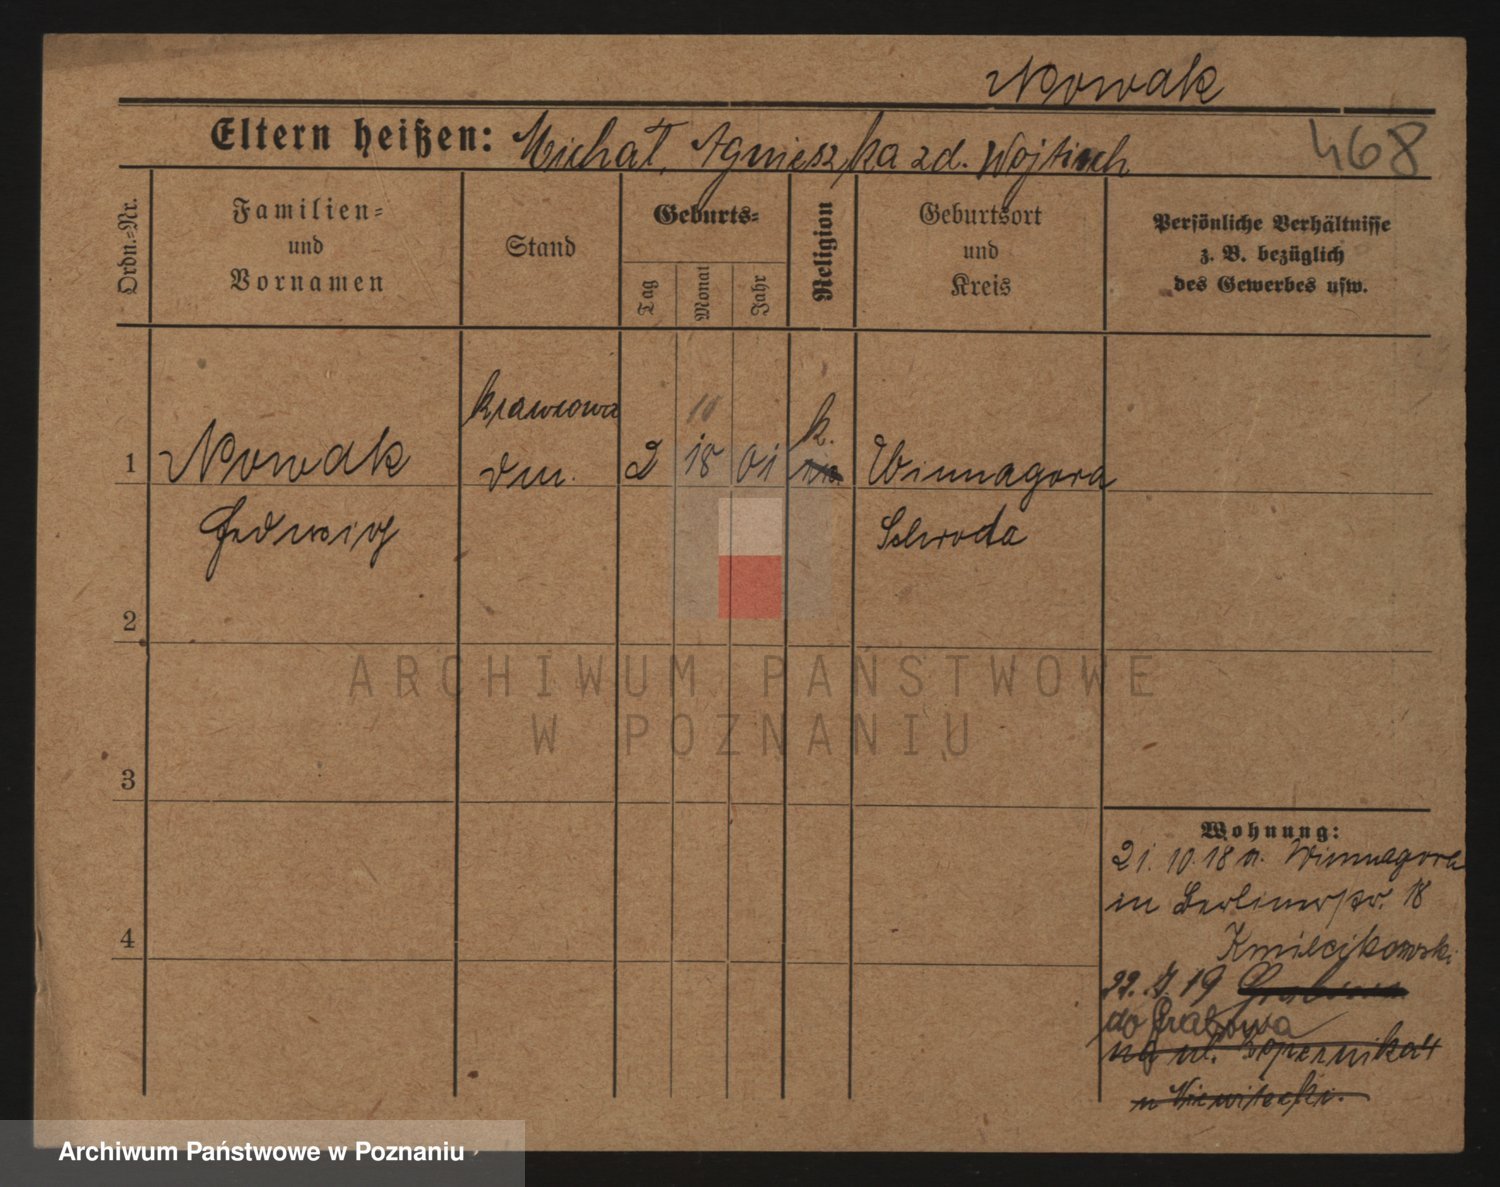 Nowak
Eltern heißen: Michał, Agnieszka zd. Wojtisch
468
Ordn.-Nr.
Familien-
und
Vornamen
Stand
Geburts-
Tag
Monat
Jahr
Religion
Geburtsort
und
Kreis
Persönliche Verhältnisse
z. B. bezüglich
des Gewerbes usw.
krawcowa
10
k.
1 Nowak
2 18 01
Winnagora
Hedwig
Schroda
2
ARCHIWUM PAŃSTWOWE
W POZNANIU
3
Wohnung:
21. 10. 18 a. Winnagora
in Berlinerstr. 18
4
Kmiecikowski
22. 19
do Grabowa
na ul. Kopernika 4
u
Archiwum Państwowe w Poznaniu